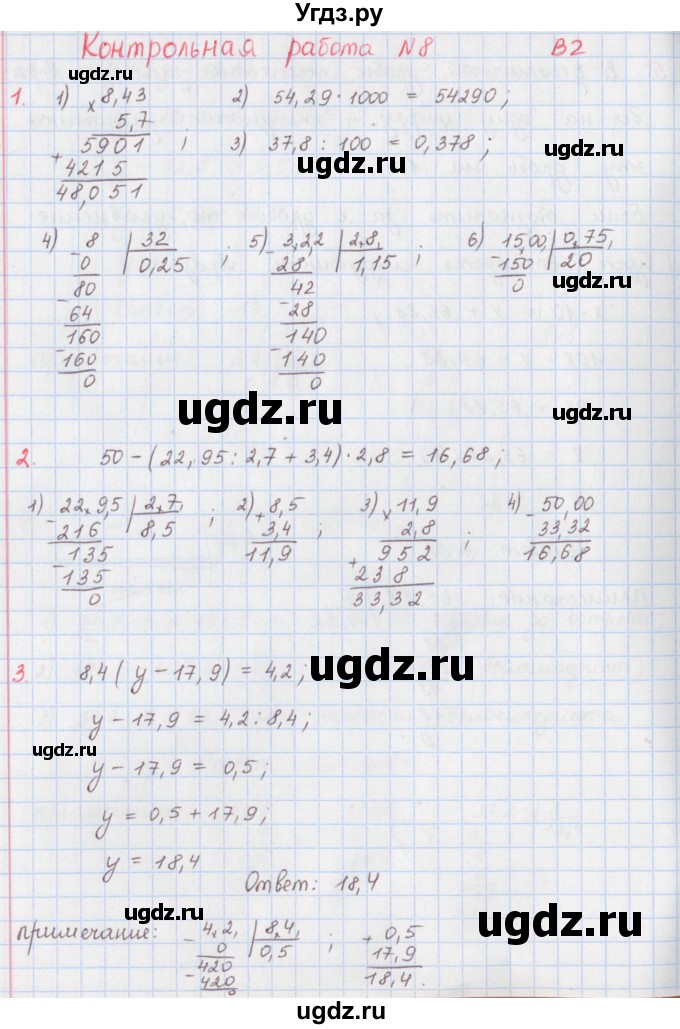 Угдз.ру
Контрольная работа N8 В2
1. 1) × 8,43 2) 54,29 · 1000 = 54290;
5,7
5901 ; 3) 37,8 : 100 = 0,378;
+
4215
48,051
ugdz.ru
4) 8 | 32 ; 5) 3,2,2 | 2,8, ; 6) 15,00, | 0,75,
- 0 | 0,25 - 28 | 1,15 - 150 | 20
80 42 0
- 64 - 28
160 140
- 160 - 140
0 0
ugdz.ru
ugdz.ru
2. 50 - (22,95 : 2,7 + 3,4) · 2,8 = 16,68;
1) 22,9,5 | 2,7, ; 2) + 8,5 ; 3) × 11,9 ; 4) - 50,00
- 216 | 8,5 3,4 2,8 33,32
135 11,9 + 952 16,68
- 135 238
0 33,32
ugdz.ru
3. 8,4(у - 17,9) = 4,2;
ugdz.ru
у - 17,9 = 4,2 : 8,4;
ugdz.ru
у - 17,9 = 0,5;
у = 0,5 + 17,9;
у = 18,4
Ответ: 18,4
ugdz.ru
примечание: - 4,2, | 8,4, ; + 0,5
0 | 0,5 17,9
420 18,4.
- 420
0
ugdz.ru
ugdz.ru